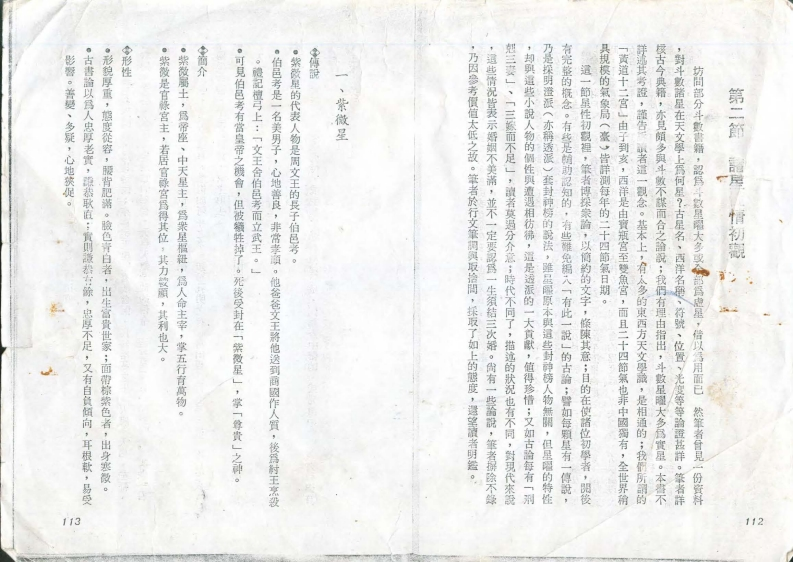 第二節　諸星　情初觀
坊間部分斗數書籍，認爲斗數星曜大多或　部爲虛星，借以爲用而已　然筆者曾見一份資料
，對斗數諸星在天文學上爲何星？古星名、西洋名稱、符號、位置、光度等等論證甚詳。筆者詳
　古今典籍，亦見頗多與斗數不謀而合之論說；我們有理由指出，斗數星曜大多爲實星。本書不
詳述其考證，謹告　讀者這一觀念。基本上，有太多的東西方天文學識，是相通的；我們所謂的
「黃道十二宮」由子到亥，西洋是由寶瓶宮至雙魚宮，而且二十四節氣也非中國獨有，全世界稍
具規模的氣象局（臺）皆詳測每年的二十四節氣日期。
這一節星性初觀裡，筆者博採衆論，以簡約的文字，條陳其意；目的在使諸位初學者，閱後
有完整的概念。有些是輔助認知的，有些難免編入「有此一說」的古論；譬如每顆星有一傳說，
乃是採明澄派（亦稱透派）套封神榜的說法，雖星曜原本與這些封神榜人物無關，但星曜的特性
，却與這些小說人物的個性與遭遇相彷彿，這是透派的一大貢獻，值得珍惜；又如古論每有「刑
剋三妻」、「三嫁而不足」，讀者莫過分介意；時代不同了，描述的狀況也有不同，對現代來說
，這些情況皆表示婚姻不美滿，並不一定要認爲一生須結三次婚。尙有一些論說，筆者擦除不錄
，乃因參考價值太低之故。筆者於行文筆調與取捨間，採取了如上的態度，還望讀者明鑑。
112
一、紫微星
傳說
●紫微星的代表人物是周文王的長子伯邑考。
●伯邑考是一名美男子，心地善良，非常孝順。他爸爸文王將他送到商國作人質，後爲紂王烹殺
。禮記檀弓上：「文王舍伯邑考而立武王。」
●可見伯邑考有當皇帝之機會，但被犧牲掉了。死後受封在「紫微星」，掌「尊貴」之神。
簡介
●紫微屬土，爲帝座、中天星主，爲衆星樞紐，爲人命主宰，掌五行育萬物。
●紫微是官祿宮主，若居官祿宮爲得其位，其力發顯，其利也大。
形性
●形貌厚重，態度從容，腰背肥滿。臉色青白者，出生富貴世家；面帶棕紫色者，出身寒微。
●古書論以爲人忠厚老實，謙恭耿直；實則謙恭有餘，忠厚不足，又有自負傾向，耳根軟，易受
影響。善變、多疑，心地狹促。
113